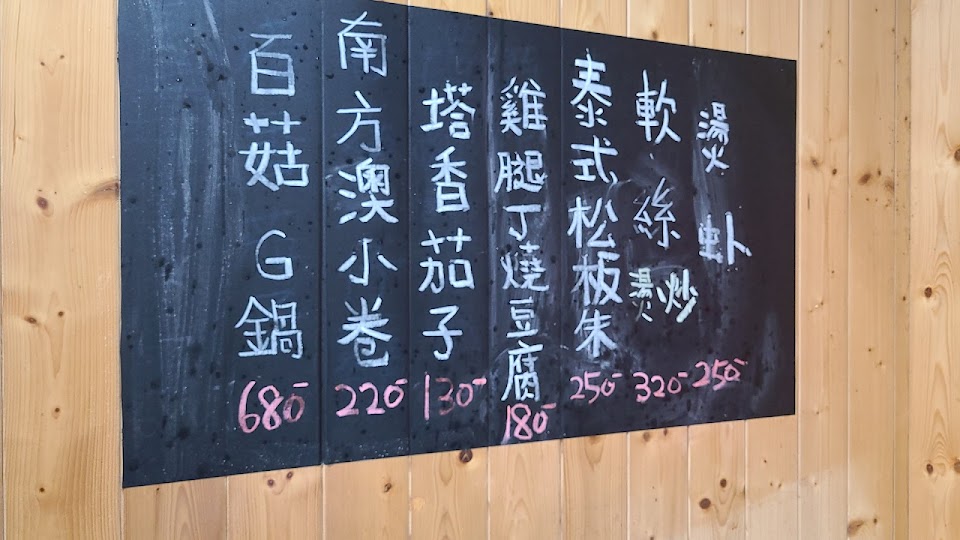 燙虾 250-
軟絲 燙、炒 320-
泰式松板朱 250-
雞腿丁燒豆腐 180-
塔香茄子 130-
南方澳小卷 220-
百菇G鍋 680-